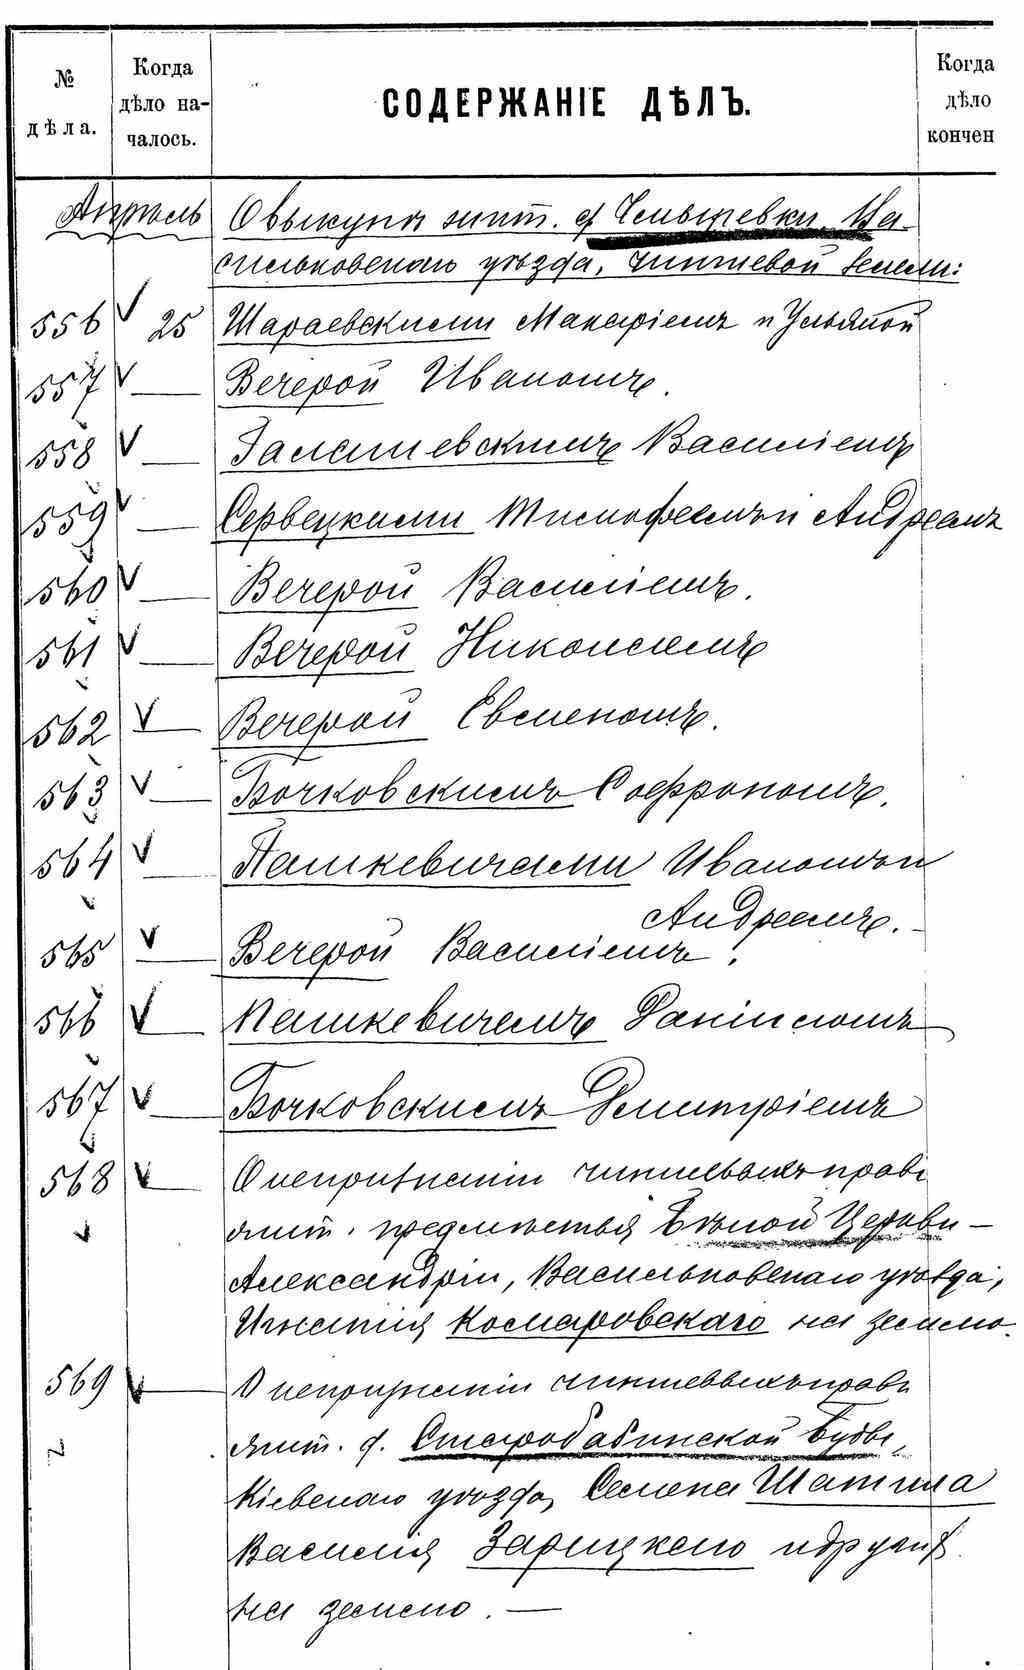 № дѣла.
Когда дѣло на-чалось.
СОДЕРЖАНІЕ ДѢЛЪ.
Когда дѣло кончен
Апрель О выкупѣ жит. д. Ва-
сильковскаго уѣзда, чиншевой земли:
556 25 Шараевскими Макаріемъ и Ульяной
557 — Вечерой Иваномъ.
558 — Галашевскимъ Василіемъ
559 — Сервецкими Тимофеемъ и Андреемъ
560 — Вечерой Василіемъ.
561 — Вечерой Николаемъ
562 — Вечерой Евменомъ.
563 — Бочковскимъ Софрономъ.
564 — Пашкевичами Иваномъ и
Андреемъ.
565 — Вечерой Василіемъ.
566 — Пашкевичемъ Даніиломъ
567 — Бочковскимъ Дмитріемъ
568 — О непризнаніи чиншевыхъ правъ
жит. предмѣстья Бѣлой Церкви —
Александріи, Васильковскаго уѣзда,
Игнатія Комаровскаго на землю.
569 — О непризнаніи чиншевыхъ правъ
жит. д. Старобабинской Буды,
Кіевскаго уѣзда, Семена Шатила
Василія Зарицкаго и другихъ
на землю. —